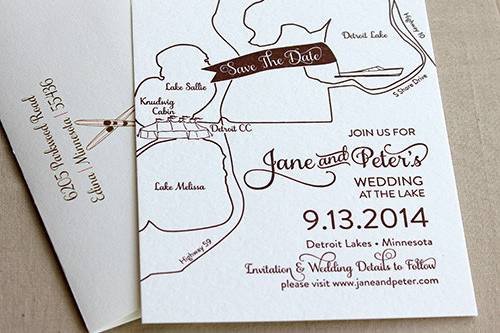 Detroit Lake
Highway 10
S Shore Drive
Save The Date
Lake Sallie
Knudwig
Cabin
Detroit CC
Lake Melissa
Highway 59
JOIN US FOR
Jane and Peter's
WEDDING
AT THE LAKE
9.13.2014
Detroit Lakes • Minnesota
Invitation & Wedding Details to Follow
please visit www.janeandpeter.com
6205 Parkwood Road
Edina | Minnesota | 55436